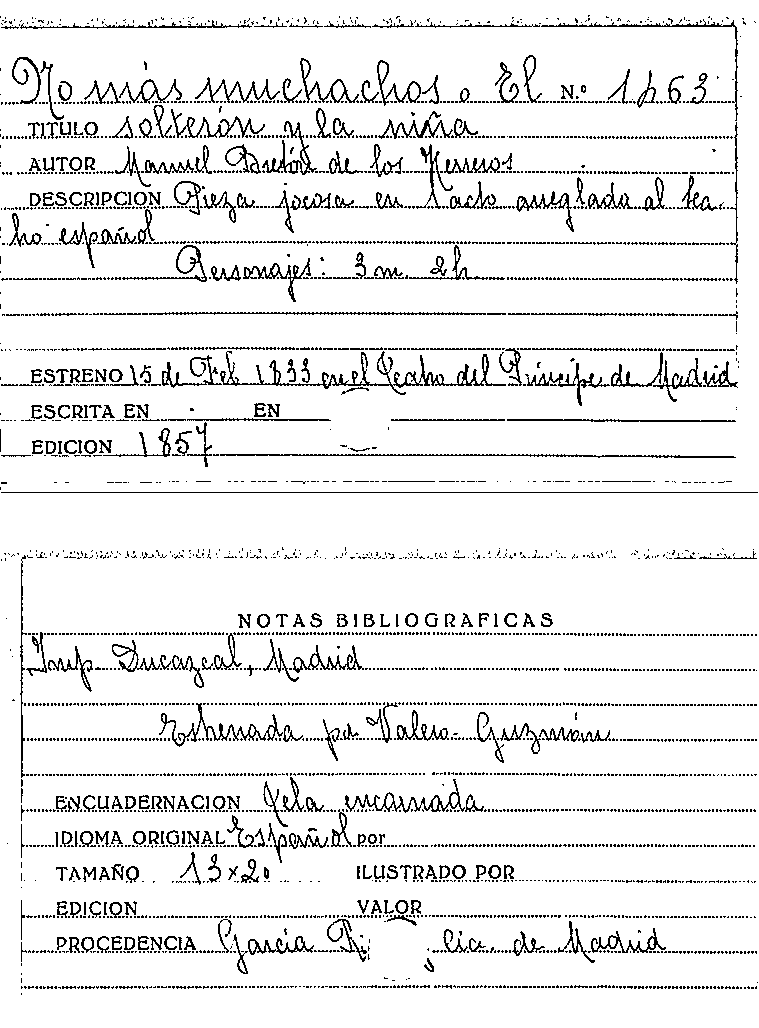 No más muchachos o El N.º 1463
TITULO solterón y la niña
AUTOR Manuel Bretón de los Herreros
DESCRIPCION Pieza jocosa en 1 acto arreglada al tea-
tro español
Personajes: 3 m. 2 h.
ESTRENO 15 de Feb 1833 en el Teatro del Príncipe de Madrid
ESCRITA EN EN
EDICION 1857
NOTAS BIBLIOGRAFICAS
Imp. Ducazcal, Madrid
Estrenada por Valero-Guzmán
ENCUADERNACION Tela encarnada
IDIOMA ORIGINAL Español por
TAMAÑO 13x20 ILUSTRADO POR
EDICION VALOR
PROCEDENCIA García de Madrid